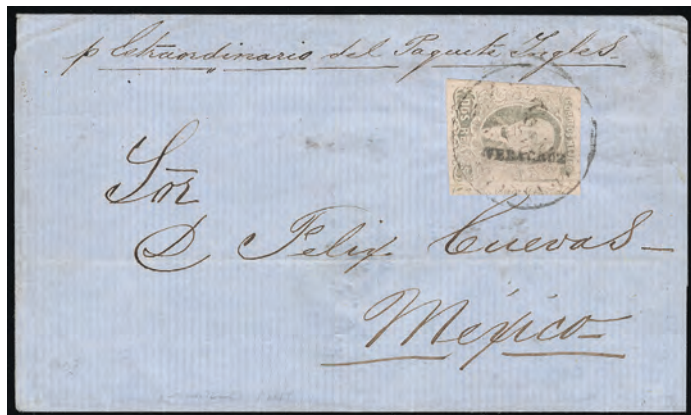 p Estraordinario del Paquete Ingles
VERACRUZ
Sōr
D Felix Cuevas
México